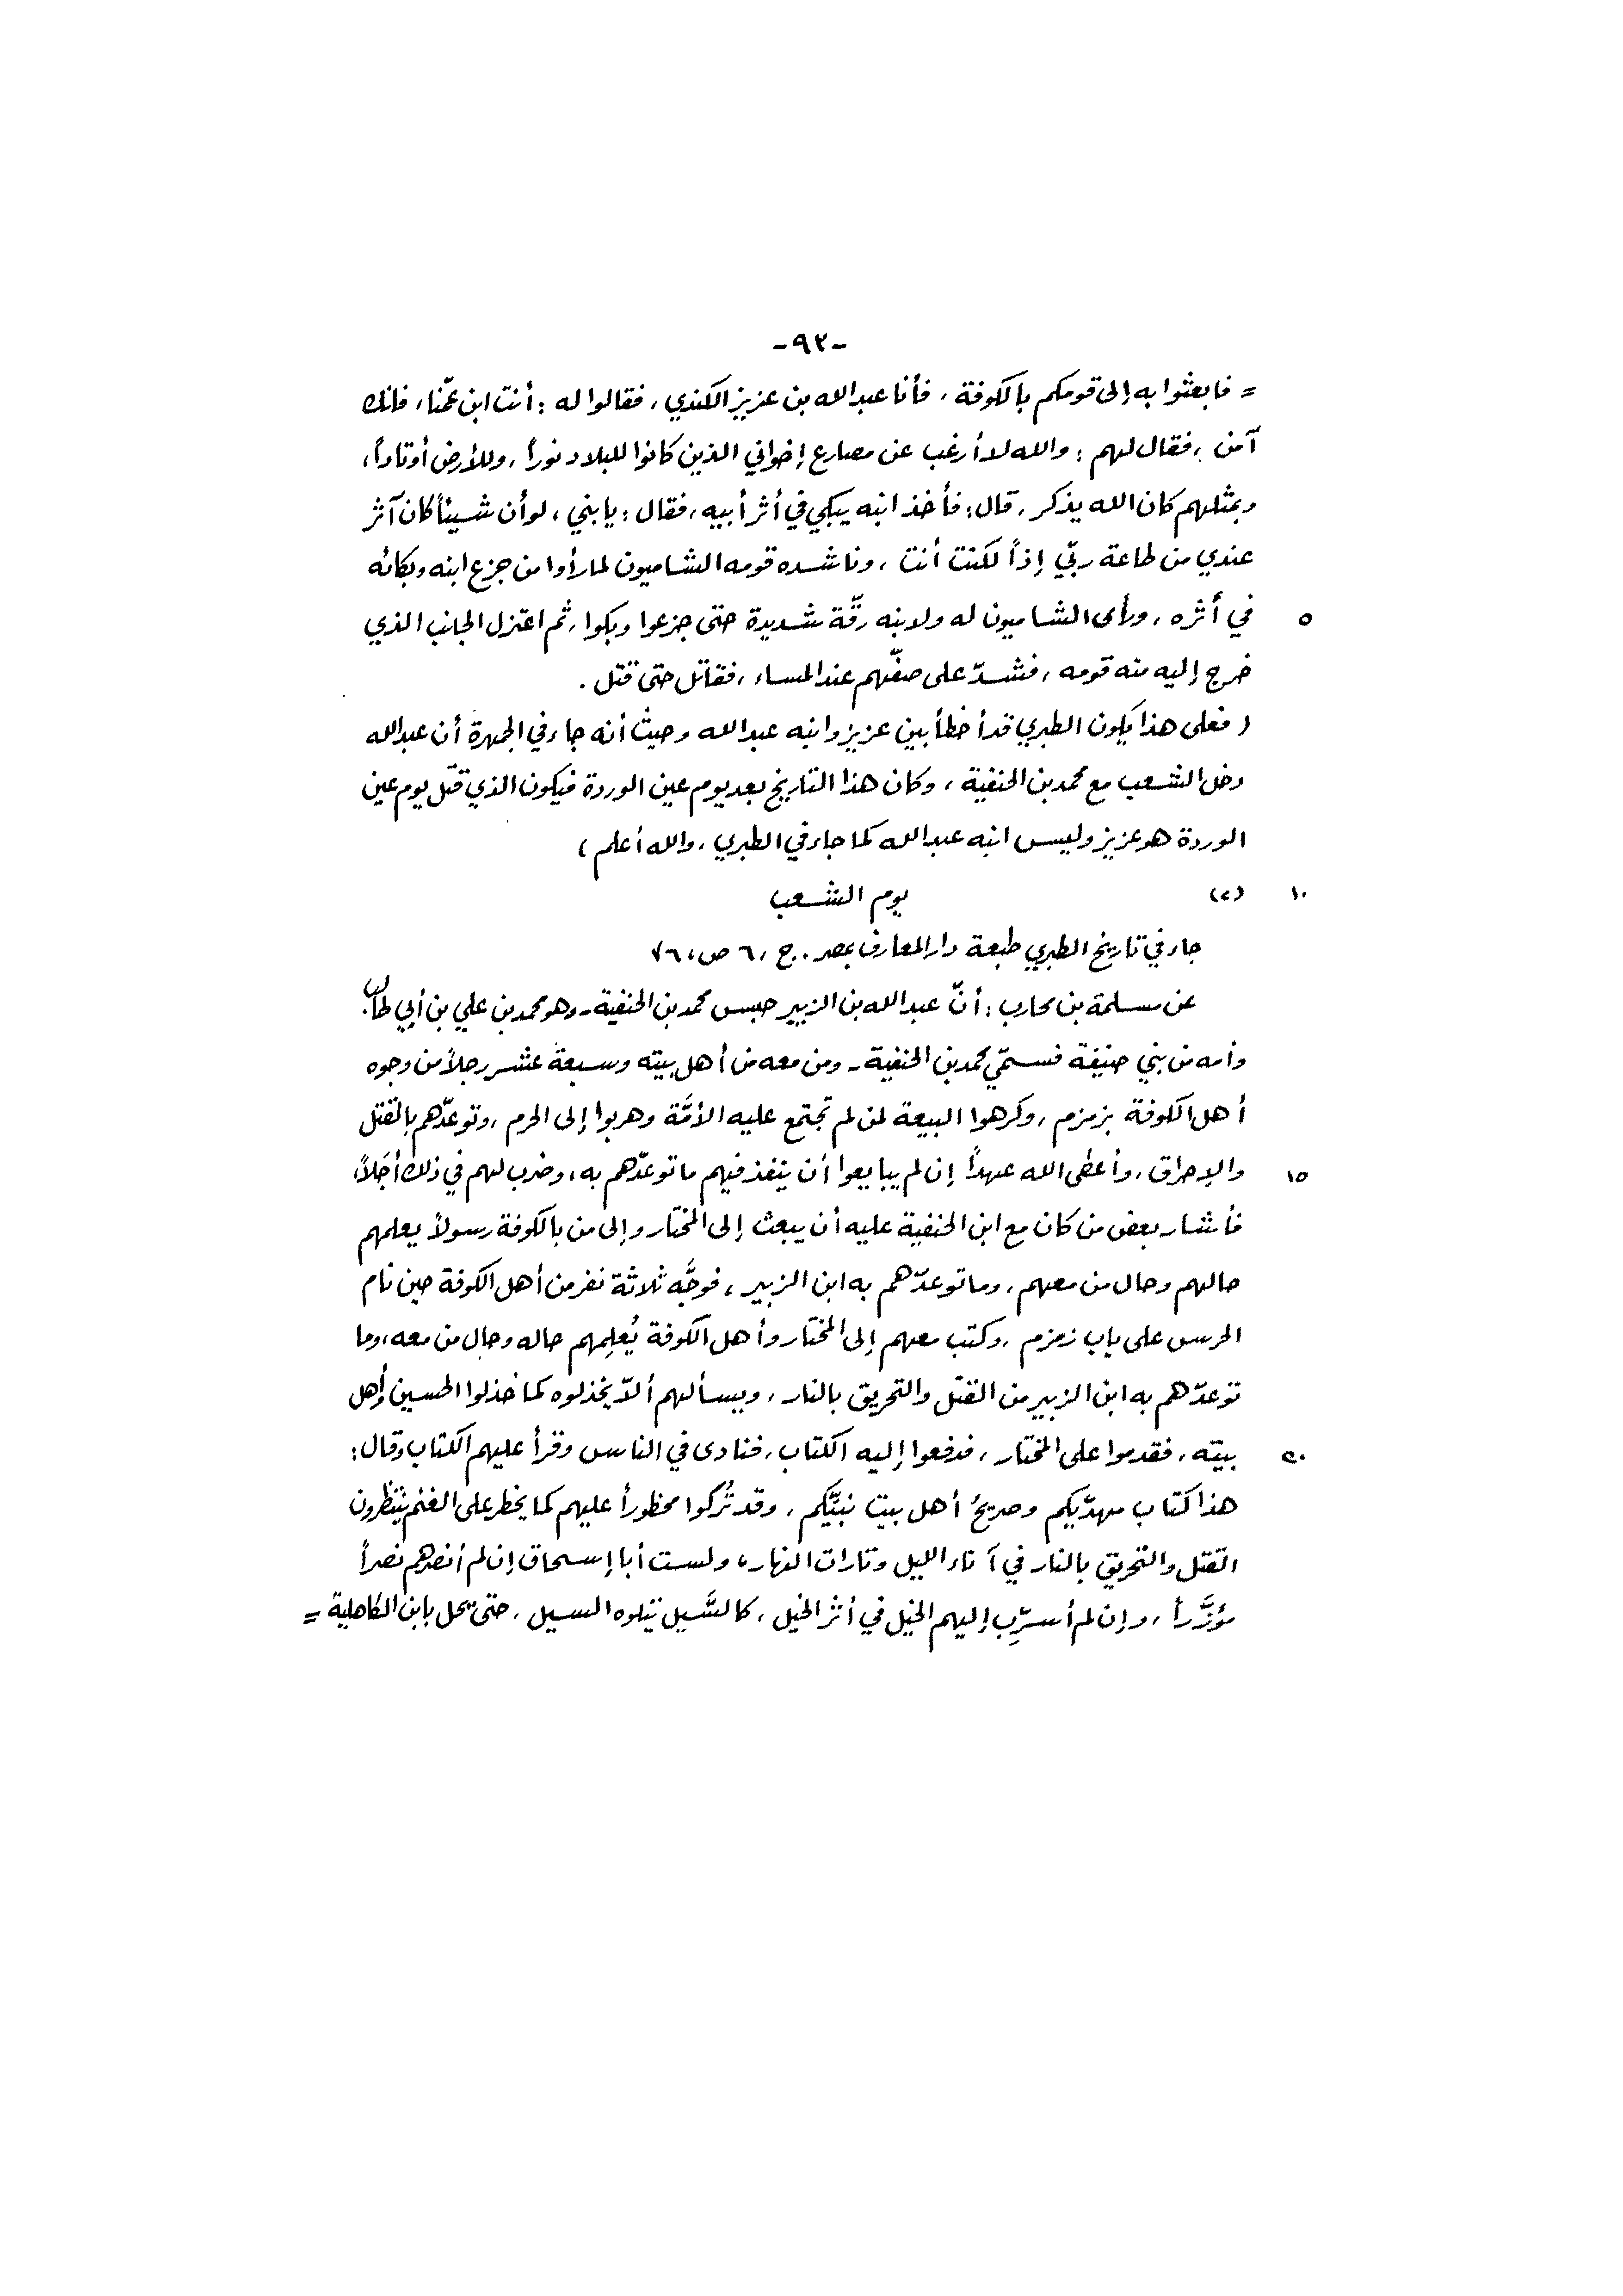 -٩٣-
= فابعثوا به إلى قومكم بالكوفة، فأنا عبد الله بن عزيز الكندي، فقالوا له: أنت ابن عمّنا، فانك
آمن، فقال لهم: والله لا أرغب عن مصارع إخواني الذين كانوا للبلاد نوراً، وللأرض أوتاداً،
وبمثلهم كان الله يذكر، قال: فأخذ ابنه يبكي في أثر أبيه، فقال: يا بني، لو أن شيئاً كان آثر
عندي من طاعة ربّي إذاً لكنت أنت، وناشده قومه الشاميون لما رأوا من جزع ابنه وبكائه
٥ في أثره، ورأى الشاميون له ولابنه رقّة شديدة حتى جزعوا وبكوا، ثم اعتزل الجانب الذي
خرج إليه منه قومه، فشدّ على صفّهم عند المساء، فقاتل حتى قتل.
(فعلى هذا يكون الطبري قد أخطأ بين عزيز وابنه عبد الله وحيث أنه جاء في الجمهرة أن عبد الله
دخل الشعب مع محمد بن الحنفية، وكان هذا التاريخ بعد يوم عين الوردة فيكون الذي قتل يوم عين
الوردة هو عزيز وليس ابنه عبد الله كما جاء في الطبري، والله أعلم)
١٠ (٢) يوم الشعب
جاء في تاريخ الطبري طبعة دار المعارف بمصر. ج، ٦ ص، ٧٦
عن مسلمة بن محارب: أنّ عبد الله بن الزبير حبس محمد بن الحنفية - وهو محمد بن علي بن أبي طالب
وأمه من بني حنيفة فسمّي محمد بن الحنفية - ومن معه من أهل بيته وسبعة عشر رجلاً من وجوه
أهل الكوفة بزمزم، وكرهوا البيعة لمن لم تجتمع عليه الأمَّة وهربوا إلى الحرم، وتوعّدهم بالقتل
١٥ والإحراق، وأعطى الله عهداً إن لم يبايعوا أن ينفذ فيهم ما توعّدهم به، وضرب لهم في ذلك أجَلاً،
فأشار بعض من كان مع ابن الحنفية عليه أن يبعث إلى المختار وإلى من بالكوفة رسولاً يعلمهم
حالهم وحال من معهم، وما توعدّهم به ابن الزبير، فوجَّه ثلاثة نفر من أهل الكوفة حين نام
الحرس على باب زمزم، وكتب معهم إلى المختار وأهل الكوفة يُعلِمهم حاله وحال من معه، وما
توعدّهم به ابن الزبير من القتل والتحريق بالنار، ويسألهم ألاّ يخذلوه كما خذلوا الحسين وأهل
٢٠ بيته، فقدموا على المختار، فدفعوا إليه الكتاب، فنادى في الناس وقرأ عليهم الكتاب وقال:
هذا كتاب مهديّكم وصريحُ أهل بيت نبيَّكم، وقد تُركوا محظوراً عليهم كما يحظر على الغنم ينتظرون
القتل والتحريق بالنار في آناء الليل وتارات النهار، ولست أبا إسحاق إن لم أنصرهم نصراً
مؤزَّراً، وإن لم أسرِّب إليهم الخيل في أثر الخيل، كالسَّيل يتلوه السيل، حتى يحل بابن الكاهلية =